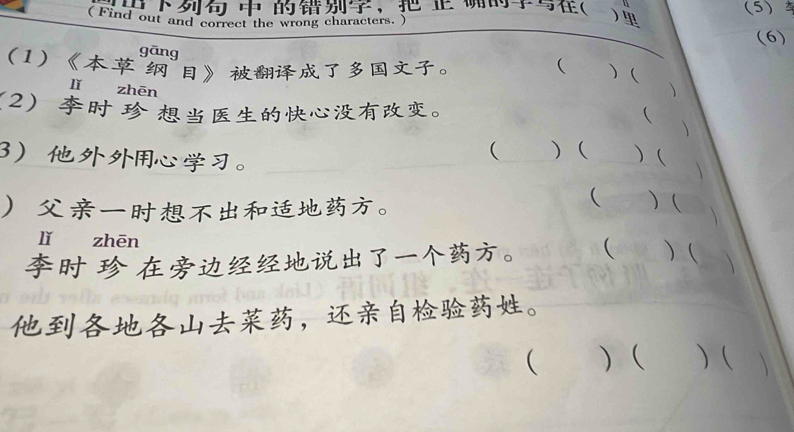 出下列句中的错别字，把正确的字写在( )里
(Find out and correct the wrong characters.)
(5)
(6)
gāng
(1)《本草纲目》被翻译成了多国文子。 ( )( )
lǐ zhēn
2) 李时珍想当医生的快心没有改变。 ( )
3) 他外外用心学习。 ( )( )( )
) 父亲一时想不出和适地药方。 ( )( )
lǐ zhēn
李时珍在旁边经经地说出了一个药方。 ( )( )
他到各地各山去菜药，还亲自检验药姓。
( )( )( )